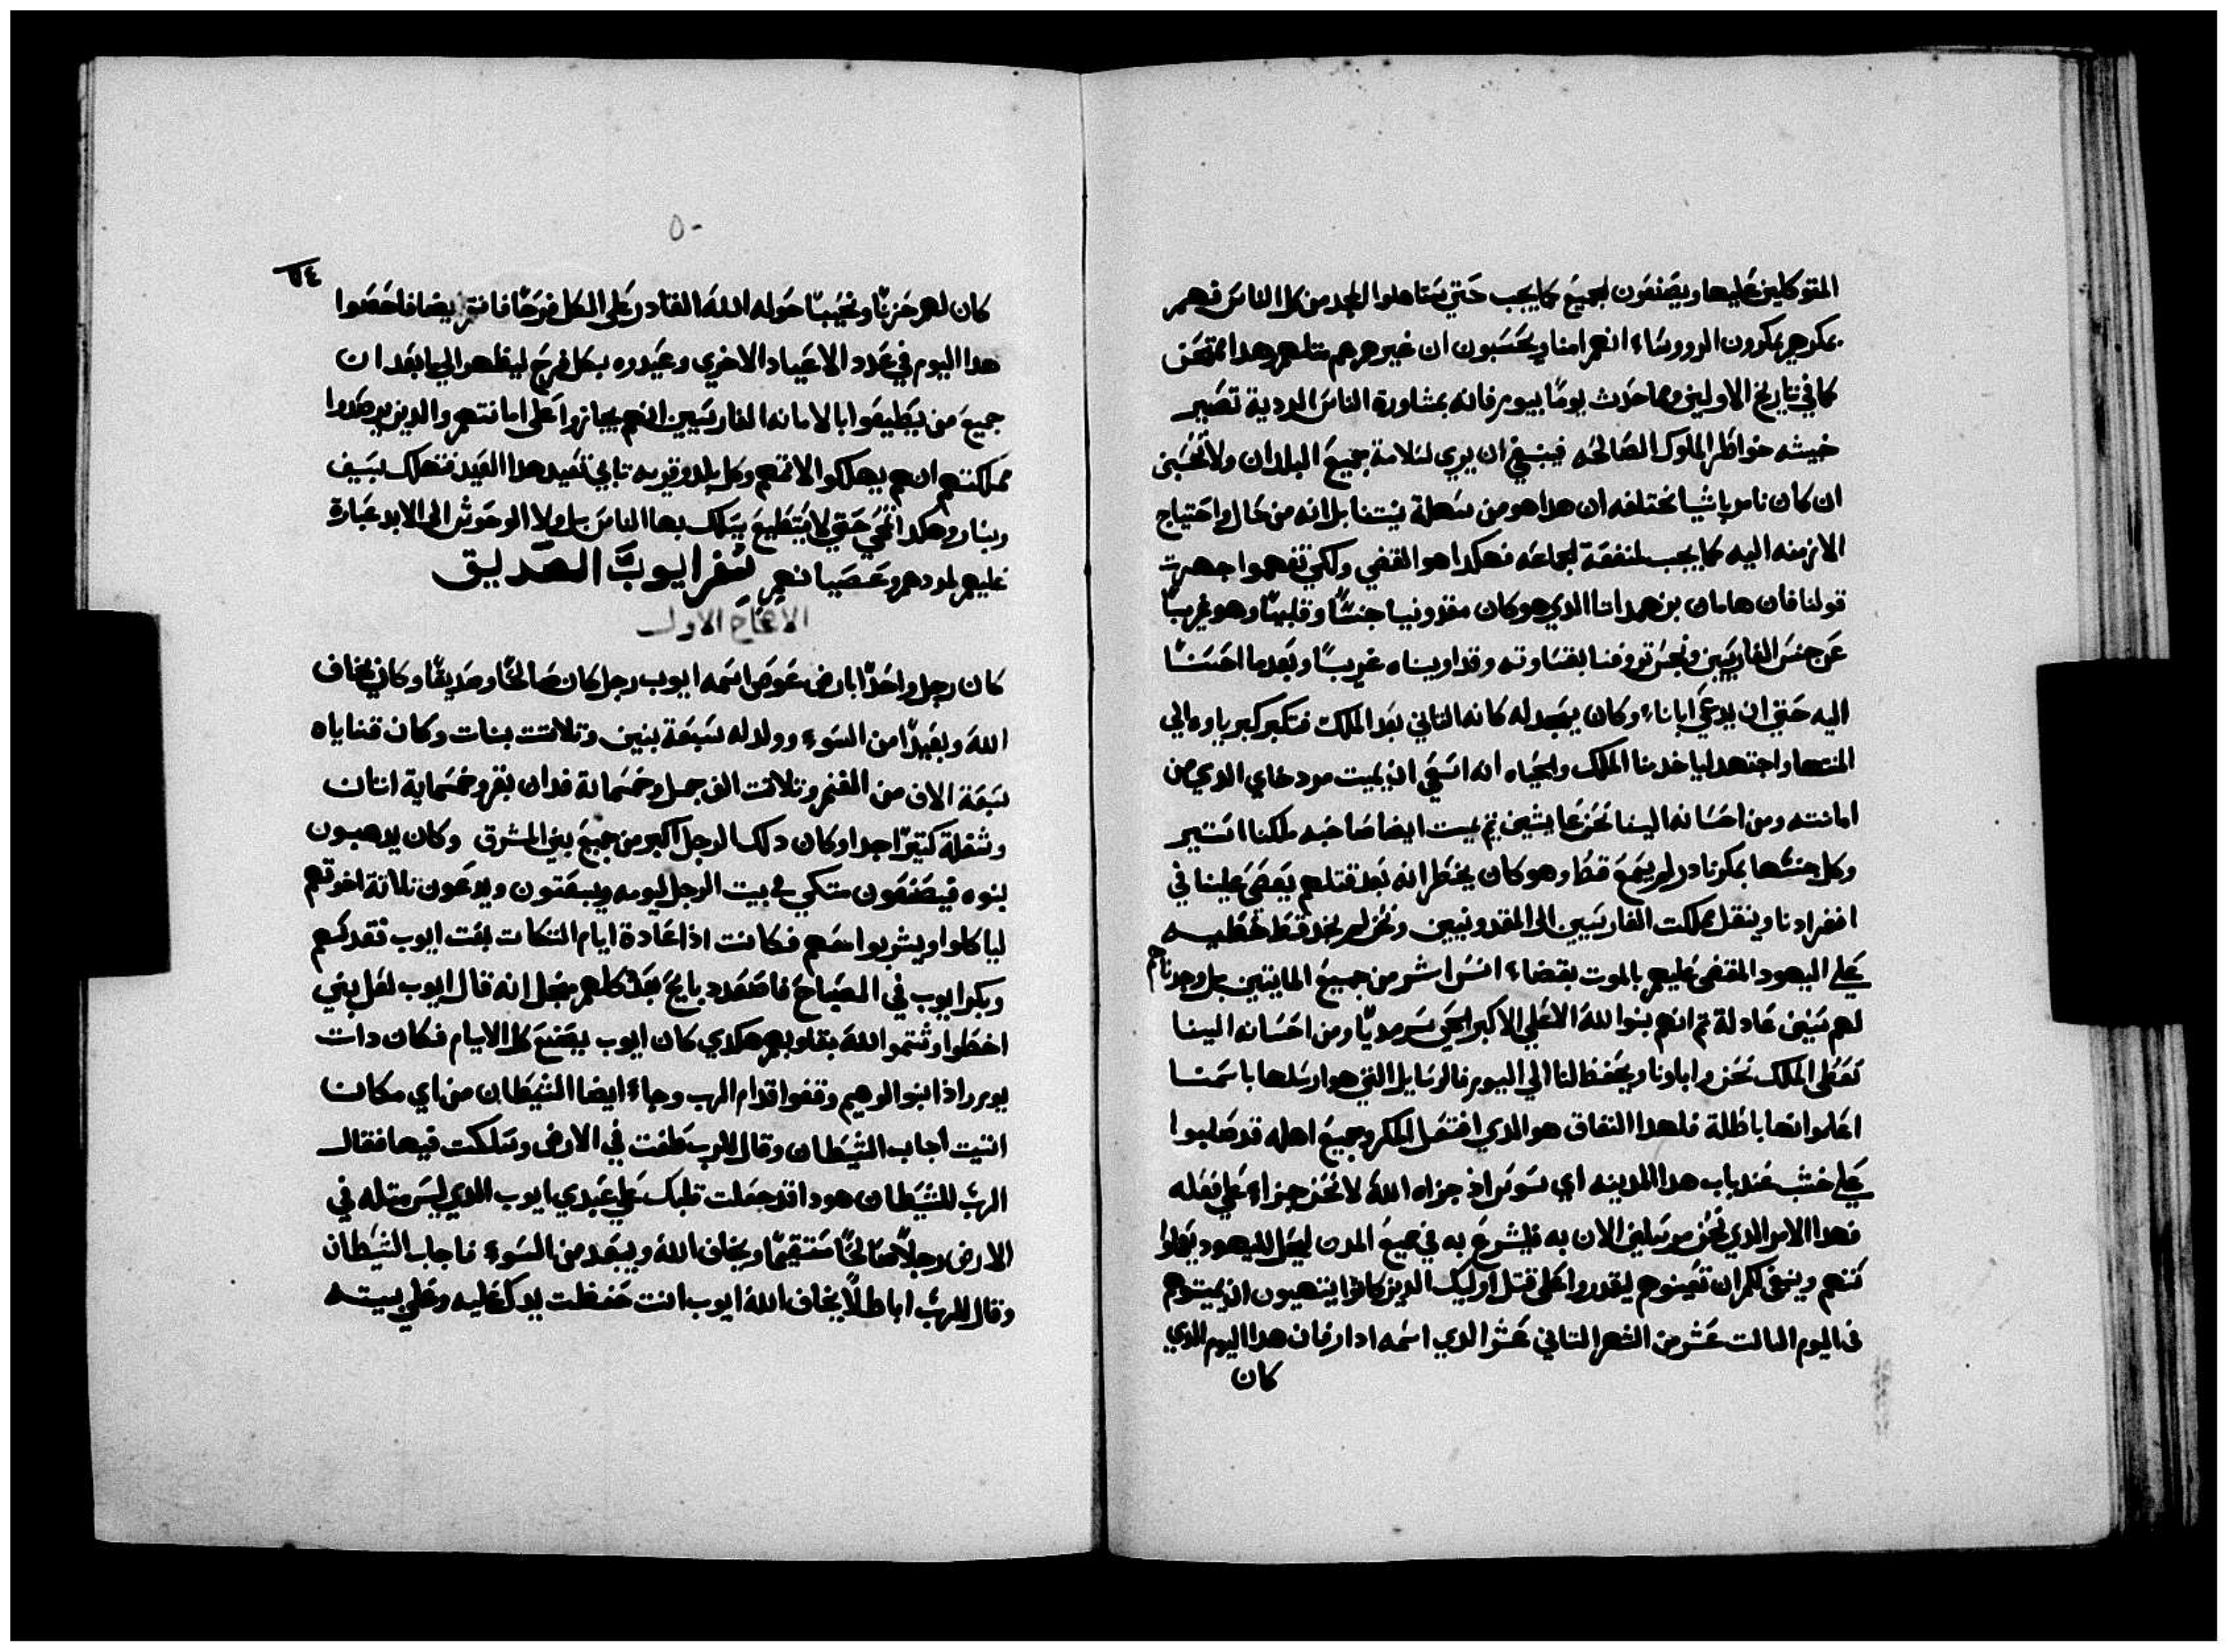 المتوكلين عليها ويصنعون لجميع كما يجب حتي يستاهلوا المجد من كل الناس فهم
بمكرهم يمكرون الرووساء انهم امنا ويحسبون ان غيرهم هم متلهم وهدا ممتحن
كما في تاريخ الاولين ومما حدث يوماً بيوم فانه بمشاورة الناس الردية تصير
خبيثه خواطر الملوك الصالحه فينبغي ان يري لسلامة جميع البلدان ولا تحسبن
ان كان نامر باشيا مختلفه ان هدا هو من سهلة نيتنا بل انه من حال واحتياج
الازمنه اليه كما يجب لمنفعة الجماعه فهكدا هو المقضي ولكي تفهموا جهرت
قولنا فان هامان بن همداتا الدي هو كان مقدونيا جنساً وقلبياً وهو غريباً
عن جنس الفارسيين ونجس تروفنا بقساوته وقد اويناه غريباً وبعد ما احسنا
اليه حتي ان يدعي ابانا وكان يسجد له كانه التاني بعد الملك فتكبر كبرياوه الي
المنتها واجتهد لياخد منا الملك والحياه انه اسعي ان يميت مودخاي الدي من
امانته ومن احسانه الينا نحن عايشين تم يميت ايضا صاحبه ملكنا استير
وكل جنسها بمكر نادر لم يسمع قط وهو كان يخطر انه بعد قتلهم يعصي علينا في
انفرادنا وينقل مملكت الفارسيين الي المقدونيين ونحن لم نجد قط خطيه
علي اليهود المقضي عليهم بالموت بقضاء اشر من جميع المايتين بل وجدناهم
لهم سنين عادلة تم انهم بنوا الله الاعلي الاكبر الحي سرمدياً ومن احسانه الينا
نعطي الملك نحن واباونا ويحفظ لنا الي اليوم فالرسايل التي هو ارسلها باسمنا
اعلموا انها باطلة فلهدا النفاق هو الدي افتعل المكر وجميع اهله قد صلبوا
علي خشب عند باب هدا المدينه اي سوس اذ جزاه الله لا نحن جزاء علي فعله
فهدا الامر الدي نحن مرسلين الان به فليشرع به في جميع المدن ليحل لليهود يعملوا
سننهم وينبغي لكم ان تعينوهم ليقدروا علي قتل اوليك الدين كانوا ينتهيون ان يميتوهم
في اليوم التالت عشر من الشهر التاني عشر الدي اسمه ادار فان هدا اليوم الدي
كان
٥٠
كان لهم حزناً ونحيباً حوله الله القادر علي الكل فرحاً فانتم ايضا فاحصوا
هدا اليوم في عدد الاعياد الاخري وعيدوه بكل فرح ليظهر اليها بعد ان
جميع من يطيعوا بالامانه الفارسيين انهم يجازوا علي امانتهم والدين يرصدوا
مملكتهم انهم يهلكوا لاتمهم وكل بلد وقريه تابي تعيد هدا العيد فتهلك بسيف
وبنار وهكدا تمحي حتي لا يستطيع يسلك بها الناس بل ولا الوحوش الي الابد عبارة
عليهم لمردهم وعصيانهم سفر ايوب الصديق
الاصحاح الاول
كان رجل واحدا بارض عوص اسمه ايوب رجل كان صالحاً وصديقاً وكان يخاف
الله وبعيداً من السوء وولد له سبعة بنين وتلاتت بنات وكان قناياه
سبعة الاف من الغنم وتلاتت الف جمل وخمسماية فدان بقر وخمسماية اتان
وشغلة كتيراً جدا وكان دلك الرجل اكبر من جميع بني المشرق وكان يدهبون
بنوه فيصنعون متكي في بيت الرجل ليومه ويبعتون ويدعون تلاتة اخوتهم
لياكلوا ويشربوا معهم فكانت اذا عادة ايام التكات بعت ايوب فقدسهم
وبكر ايوب في الصباح فاصعد دبايح بعدد كلهم مجل انه قال ايوب لعل بني
اخطوا وشتموا الله بقلوبهم هكدي كان ايوب يصنع كل الايام فكان دات
يوم واذا بنوا الوهيم وقفوا قدام الرب وجاء ايضا الشيطان من اي مكان
اتيت اجاب الشيطان وقال للرب طفت في الارض وسلكت فيها فقال
الرب للشيطان هودا قد جعلت قلبك علي عبدي ايوب الدي ليس متله في
الارض رجلاً صالحاً مستقيماً ويخاف الله ويبعد من السوء فاجاب الشيطان
وقال للرب اباطلاً يخاف الله ايوب انت حفظت يدك عليه وعلي بيته